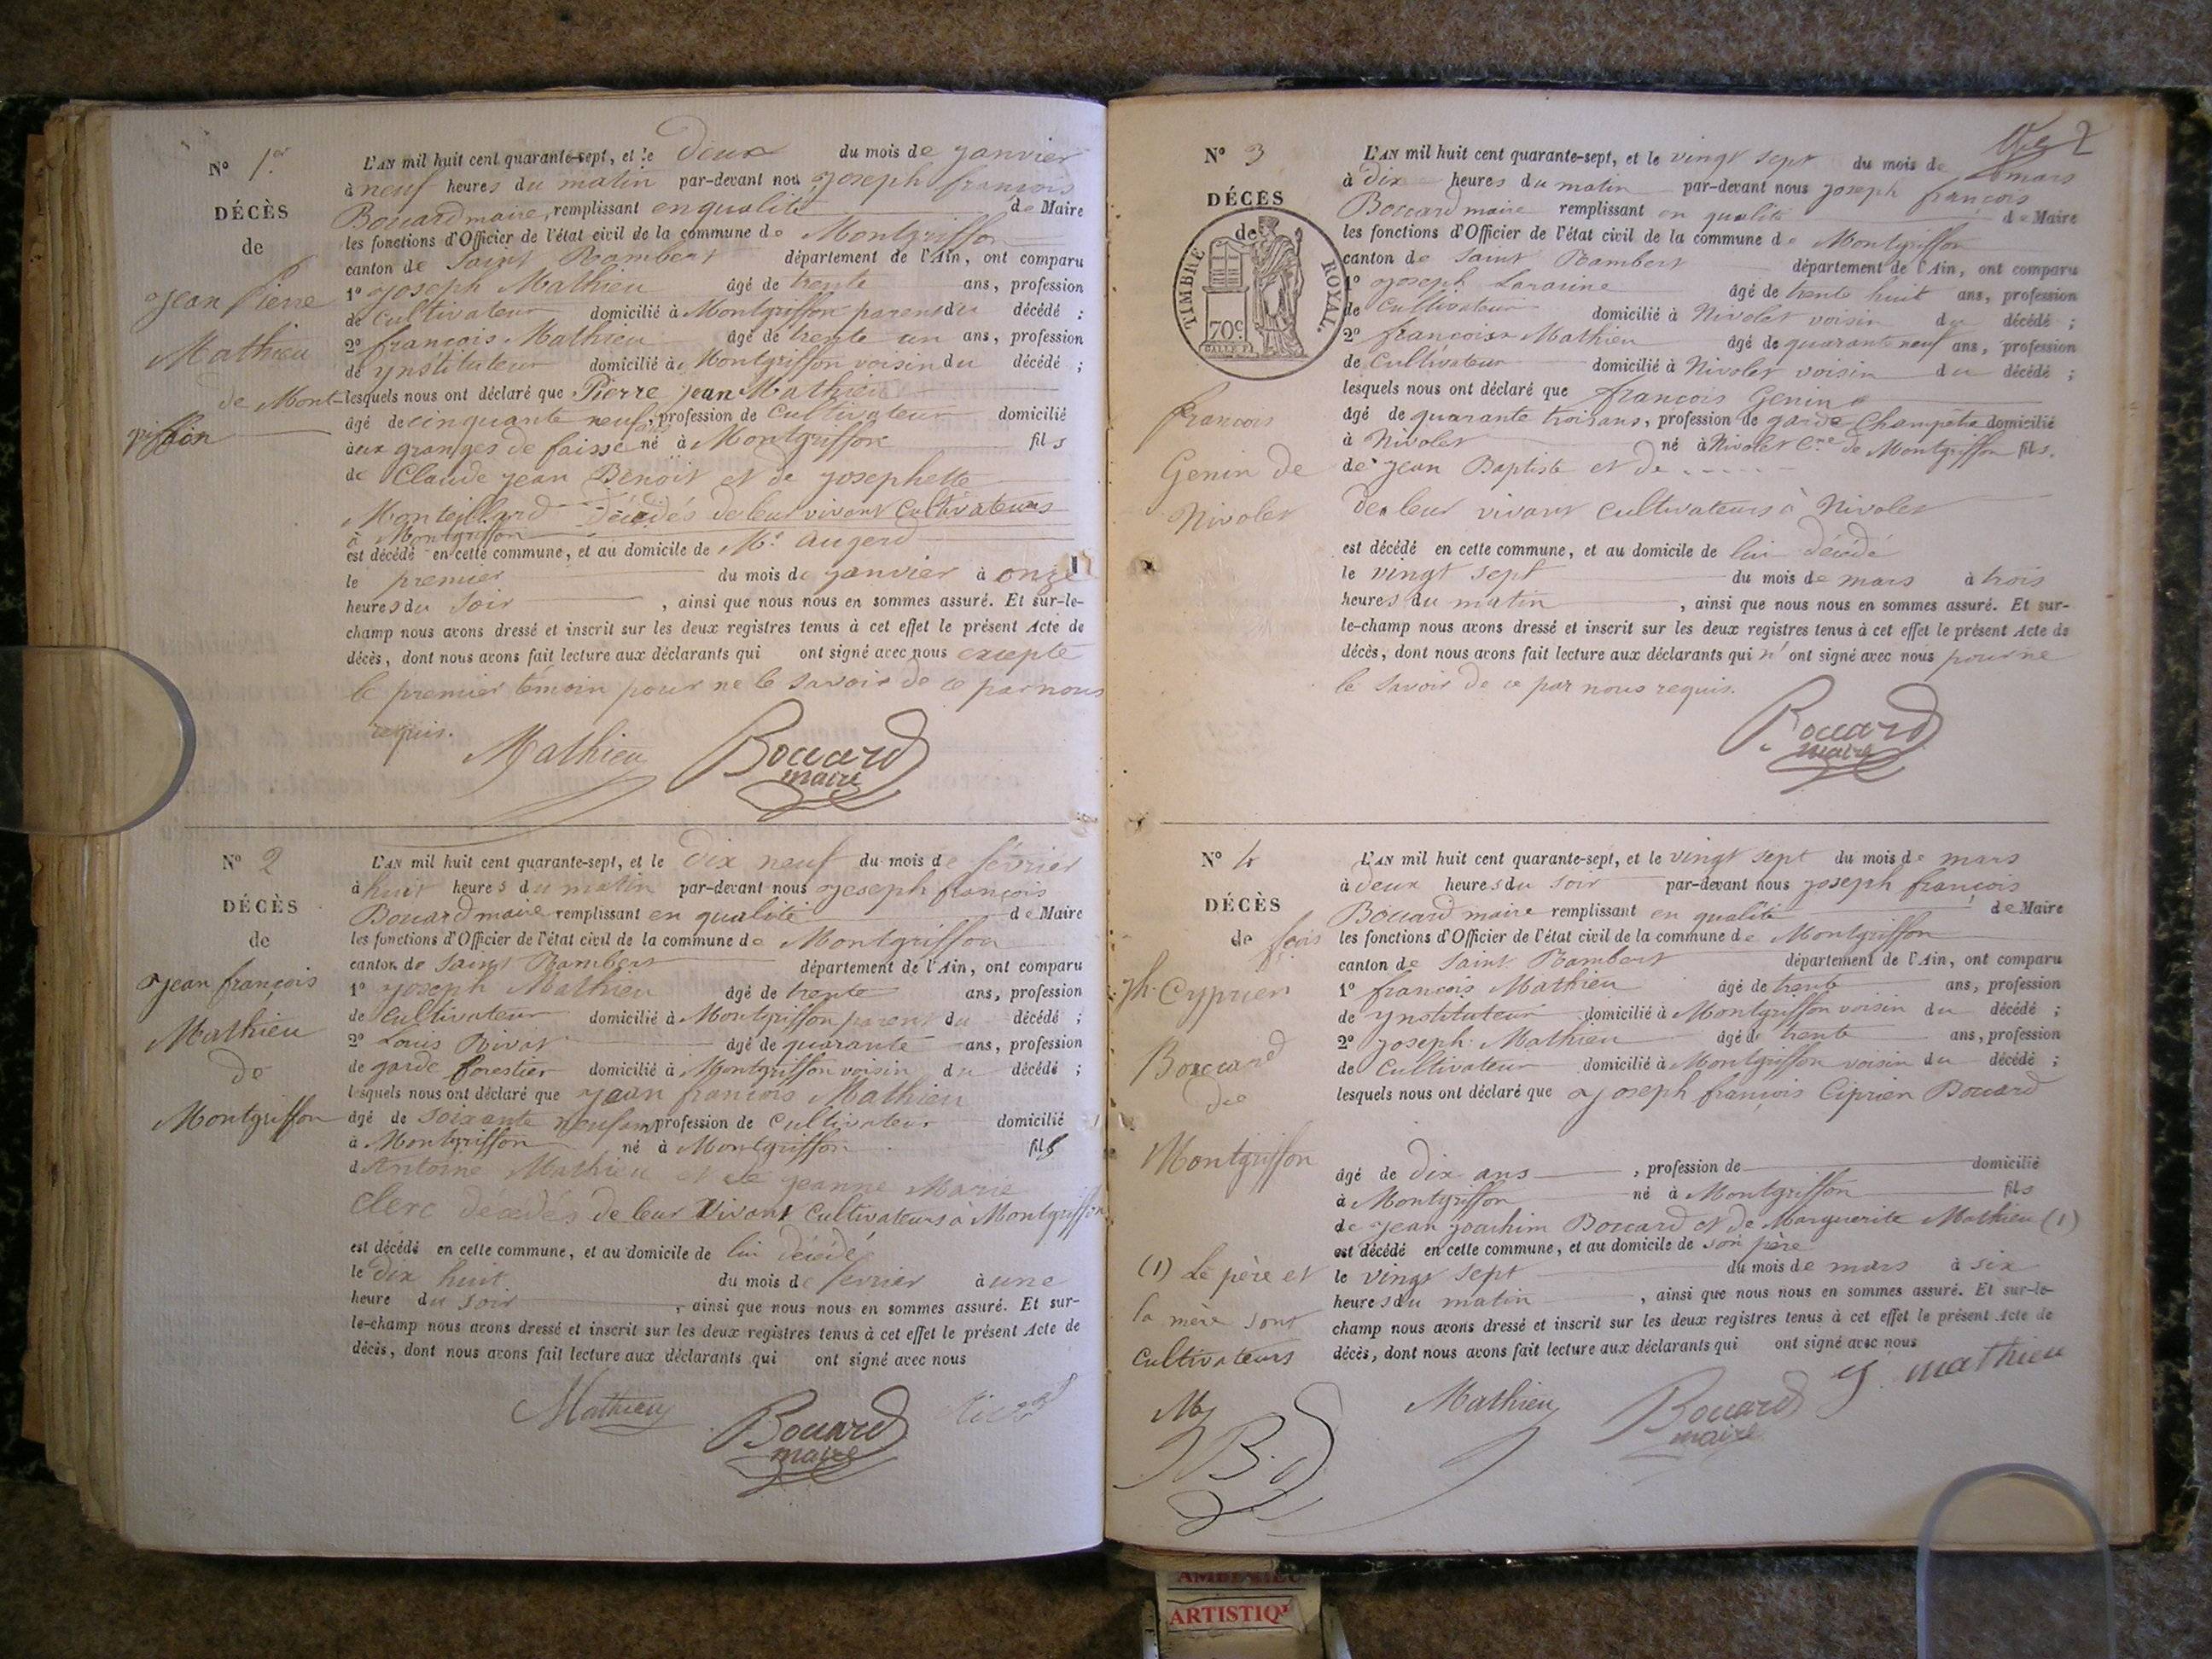 N° 1er
DÉCÈS
de
Jean Pierre
Mathieu
de Mont-
griffon
L'AN mil huit cent quarante-sept, et le deux du mois de janvier
à neuf heures du matin par-devant nous Joseph françois
Bouard maire, remplissant en qualité de Maire
les fonctions d'Officier de l'état civil de la commune de Montgriffon
canton de Saint Rambert département de l'Ain, ont comparu
1° Joseph Mathieu âgé de trente ans, profession
de Cultivateur domicilié à Montgriffon parent du décédé ;
2° françois Mathieu âgé de trente un ans, profession
de ynstituteur domicilié à Montgriffon voisin du décédé ;
lesquels nous ont déclaré que Pierre jean Mathieu
âgé de cinquante neuf ans, profession de Cultivateur domicilié
aux granges de faisse né à Montgriffon fils
de Claude jean Benoit et de josephette
Monteillard décédés de leur vivant Cultivateurs
à Montgriffon
est décédé en cette commune, et au domicile de Mr augerd
le premier du mois de janvier à onze
heures du soir , ainsi que nous nous en sommes assuré. Et sur-le-
champ nous avons dressé et inscrit sur les deux registres tenus à cet effet le présent Acte de
décès, dont nous avons fait lecture aux déclarants qui ont signé avec nous excepté
le premier témoin pour ne le savoir de ce par nous
requis.
Mathieu Bouard
maire
N° 2
DÉCÈS
de
Jean françois
Mathieu
de
Montgriffon
L'AN mil huit cent quarante-sept, et le dix neuf du mois de février
à huit heures du matin par-devant nous Joseph françois
Bouard maire remplissant en qualité de Maire
les fonctions d'Officier de l'état civil de la commune de Montgriffon
canton de Saint Rambert département de l'Ain, ont comparu
1° Joseph Mathieu âgé de trente ans, profession
de Cultivateur domicilié à Montgriffon parent du décédé ;
2° Louis Rivat âgé de quarante ans, profession
de garde forestier domicilié à Montgriffon voisin du décédé ;
lesquels nous ont déclaré que Jean françois Mathieu
âgé de soixante neuf ans profession de Cultivateur domicilié
à Montgriffon né à Montgriffon fils
d'Antoine Mathieu et de jeanne Marie
Clerc décédés de leur vivant Cultivateurs à Montgriffon
est décédé en cette commune, et au domicile de lui décédé
le dix huit du mois de fevrier à une
heure du soir , ainsi que nous nous en sommes assuré. Et sur-
le-champ nous avons dressé et inscrit sur les deux registres tenus à cet effet le présent Acte de
décès, dont nous avons fait lecture aux déclarants qui ont signé avec nous
Mathieu Bouard Rivat
maire
2
N° 3
DÉCÈS
de
TIMBRE ROYAL.
70c
françois
Genin de
Nivolet
L'AN mil huit cent quarante-sept, et le vingt sept du mois de mars
à dix heures du matin par-devant nous joseph françois
Bouard maire remplissant en qualité de Maire
les fonctions d'Officier de l'état civil de la commune de Montgriffon
canton de Saint Rambert département de l'Ain, ont comparu
1° Joseph Laraune âgé de trente huit ans, profession
de Cultivateur domicilié à Nivolet voisin du décédé ;
2° françois Mathieu âgé de quarante neuf ans, profession
de Cultivateur domicilié à Nivolet voisin du décédé ;
lesquels nous ont déclaré que françois Genin
âgé de quarante trois ans, profession de garde Champêtre domicilié
à Nivolet né à Nivolet Cne de Montgriffon fils
de jean Baptiste et de
de leur vivant Cultivateurs à Nivolet
est décédé en cette commune, et au domicile de lui décédé
le vingt sept du mois de mars à trois
heures du matin , ainsi que nous nous en sommes assuré. Et sur-
le-champ nous avons dressé et inscrit sur les deux registres tenus à cet effet le présent Acte de
décès, dont nous avons fait lecture aux déclarants qui n'ont signé avec nous pour ne
le savoir de ce par nous requis.
Bouard
maire
N° 4
DÉCÈS
de
Jh. fçois Cyprien
Bouard
de
Montgriffon
L'AN mil huit cent quarante-sept, et le vingt sept du mois de mars
à deux heures du soir par-devant nous joseph françois
Bouard maire remplissant en qualité de Maire
les fonctions d'Officier de l'état civil de la commune de Montgriffon
canton de Saint Rambert département de l'Ain, ont comparu
1° françois Mathieu âgé de trente ans, profession
de ynstituteur domicilié à Montgriffon voisin du décédé ;
2° joseph Mathieu âgé de trente ans, profession
de Cultivateur domicilié à Montgriffon voisin du décédé ;
lesquels nous ont déclaré que Joseph françois Ciprien Bouard
âgé de dix ans , profession de domicilié
à Montgriffon né à Montgriffon fils
de Jean Joachim Bouard et de Marguerite Mathieu (1)
est décédé en cette commune, et au domicile de son père
le vingt sept du mois de mars à six
heures du matin , ainsi que nous nous en sommes assuré. Et sur-le-
champ nous avons dressé et inscrit sur les deux registres tenus à cet effet le présent Acte de
décès, dont nous avons fait lecture aux déclarants qui ont signé avec nous
Mathieu Bouard J. mathieu
maire
(1) Le père et
la mère sont
Cultivateurs
M
B.d
ARTISTIQ